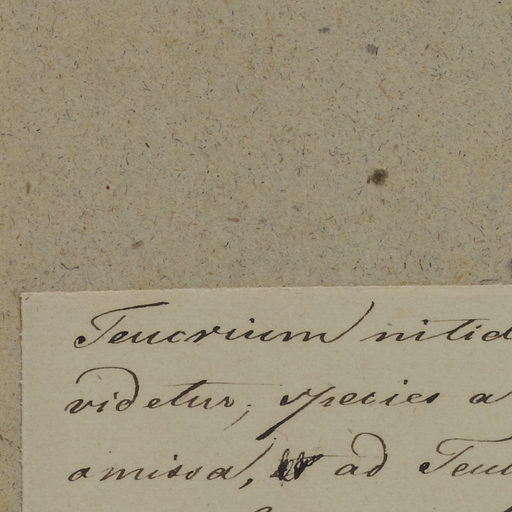 Teucrium nitid
videtur, species a
omissa, ad Teu